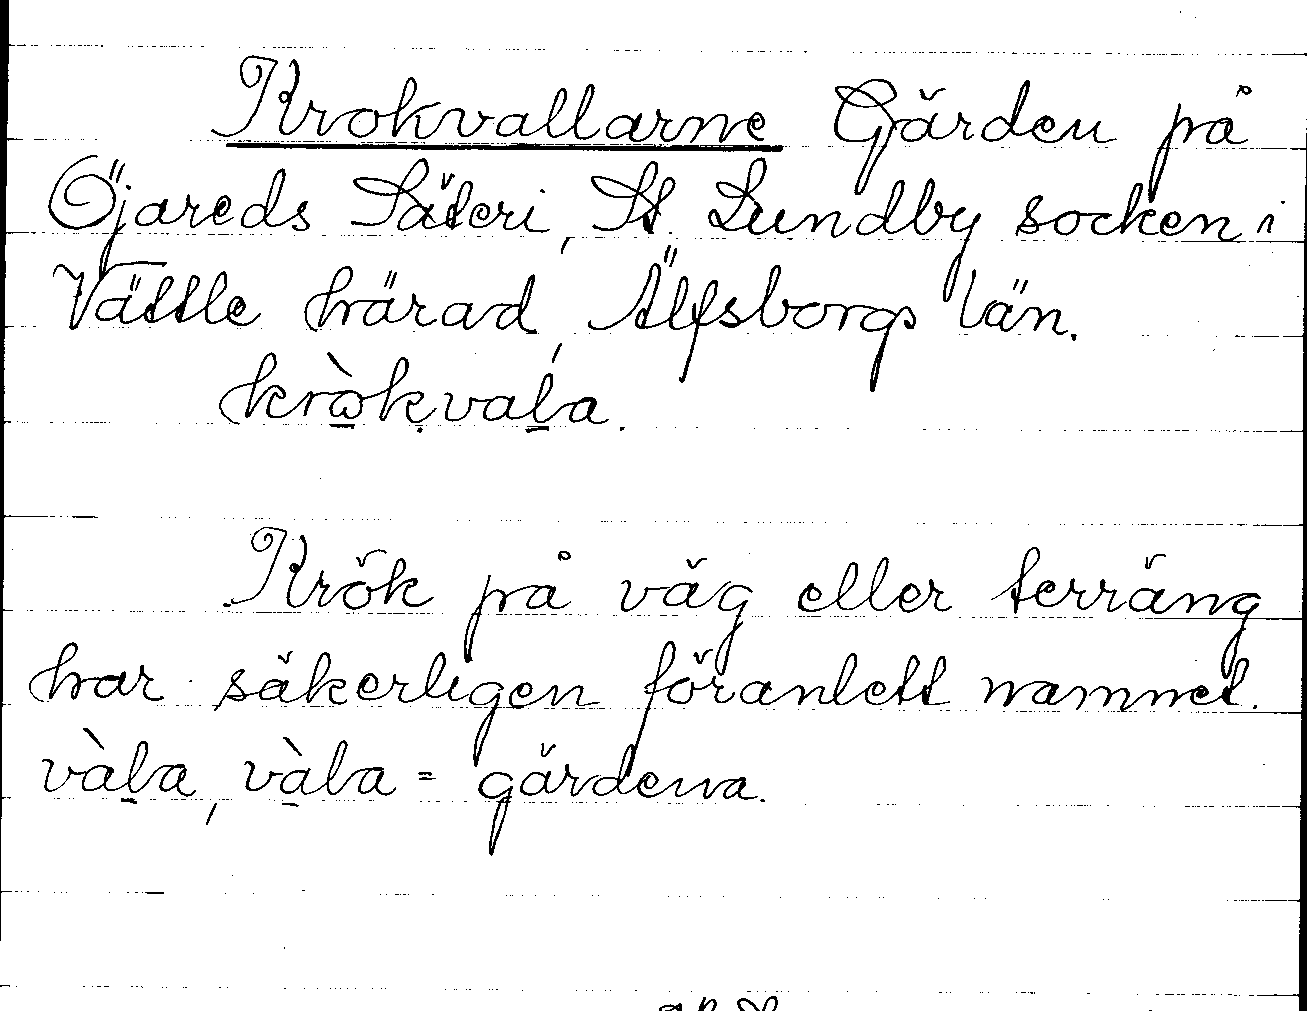 Krokvallarne Gärden på
Öjareds Säteri, St. Lundby socken i
Vättle härad, Älfsborgs län.
kròkvala.
Krök på väg eller terräng
har säkerligen föranlett namnet.
vàla, vàla = gärdena.